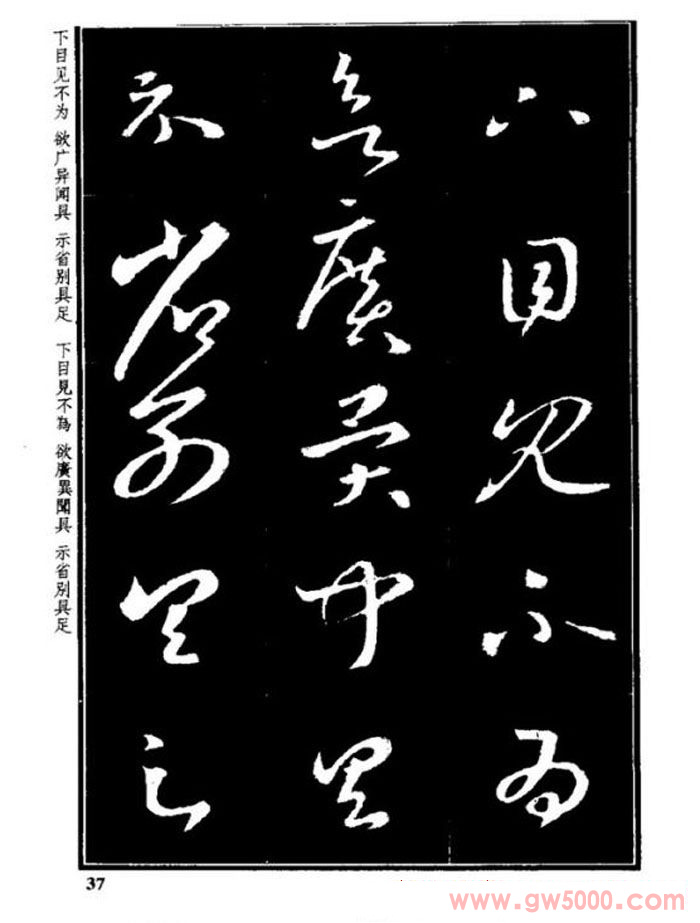 下目見不為
欲廣異聞具
示省別具足
下目见不为 欲广异闻具 示省别具足 下目見不為 欲廣異聞具 示省別具足
37
www.gw5000.com